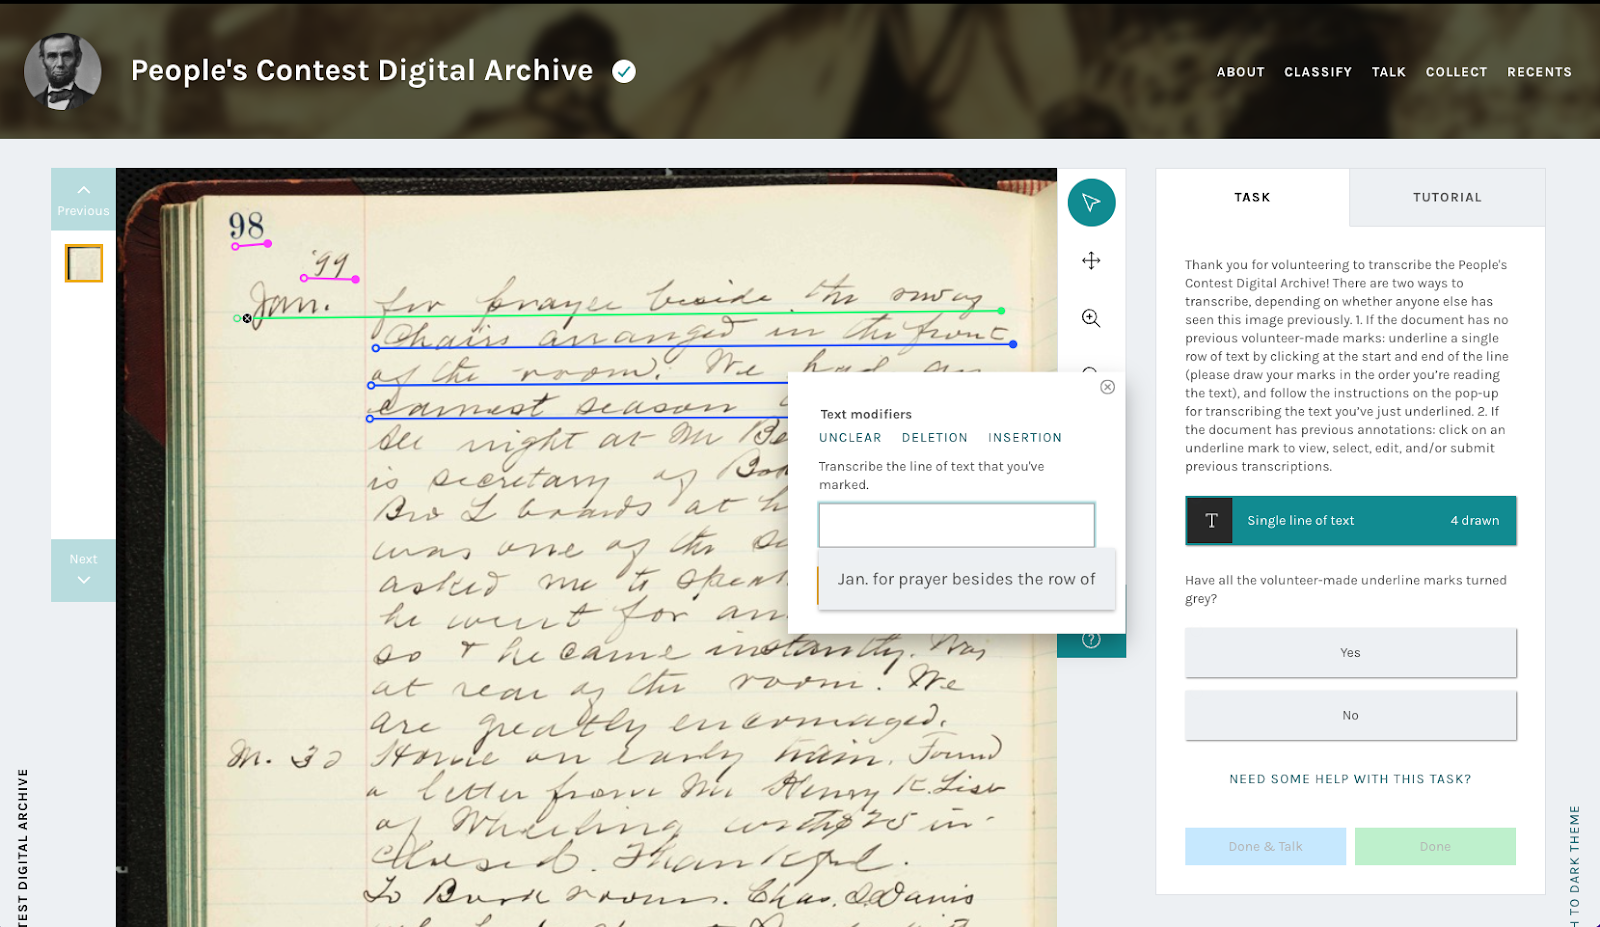 People's Contest Digital Archive
ABOUT CLASSIFY TALK COLLECT RECENTS
Previous
Next
98
'99
Jan. for prayer beside the row of
chairs arranged in the front
of the room. We had an
earnest season
All night at Mr Be
is secretary of
Bro L boards at h
was one of the
asked me to speak
he went for an
so & he came instantly. Was
at rear of the room. We
are greatly encouraged.
M. 30 Home on early train. Found
a letter from Mr Henry K. List
of Wheeling with $25 in-
closed. Thankful.
To Book room. Chas. Davis
Text modifiers
UNCLEAR DELETION INSERTION
Transcribe the line of text that you've
marked.
Jan. for prayer besides the row of
TASK TUTORIAL
Thank you for volunteering to transcribe the People's
Contest Digital Archive! There are two ways to
transcribe, depending on whether anyone else has
seen this image previously. 1. If the document has no
previous volunteer-made marks: underline a single
row of text by clicking at the start and end of the line
(please draw your marks in the order you're reading
the text), and follow the instructions on the pop-up
for transcribing the text you've just underlined. 2. If
the document has previous annotations: click on an
underline mark to view, select, edit, and/or submit
previous transcriptions.
T Single line of text 4 drawn
Have all the volunteer-made underline marks turned
grey?
Yes
No
NEED SOME HELP WITH THIS TASK?
Done & Talk Done
TEST DIGITAL ARCHIVE
H TO DARK THEME